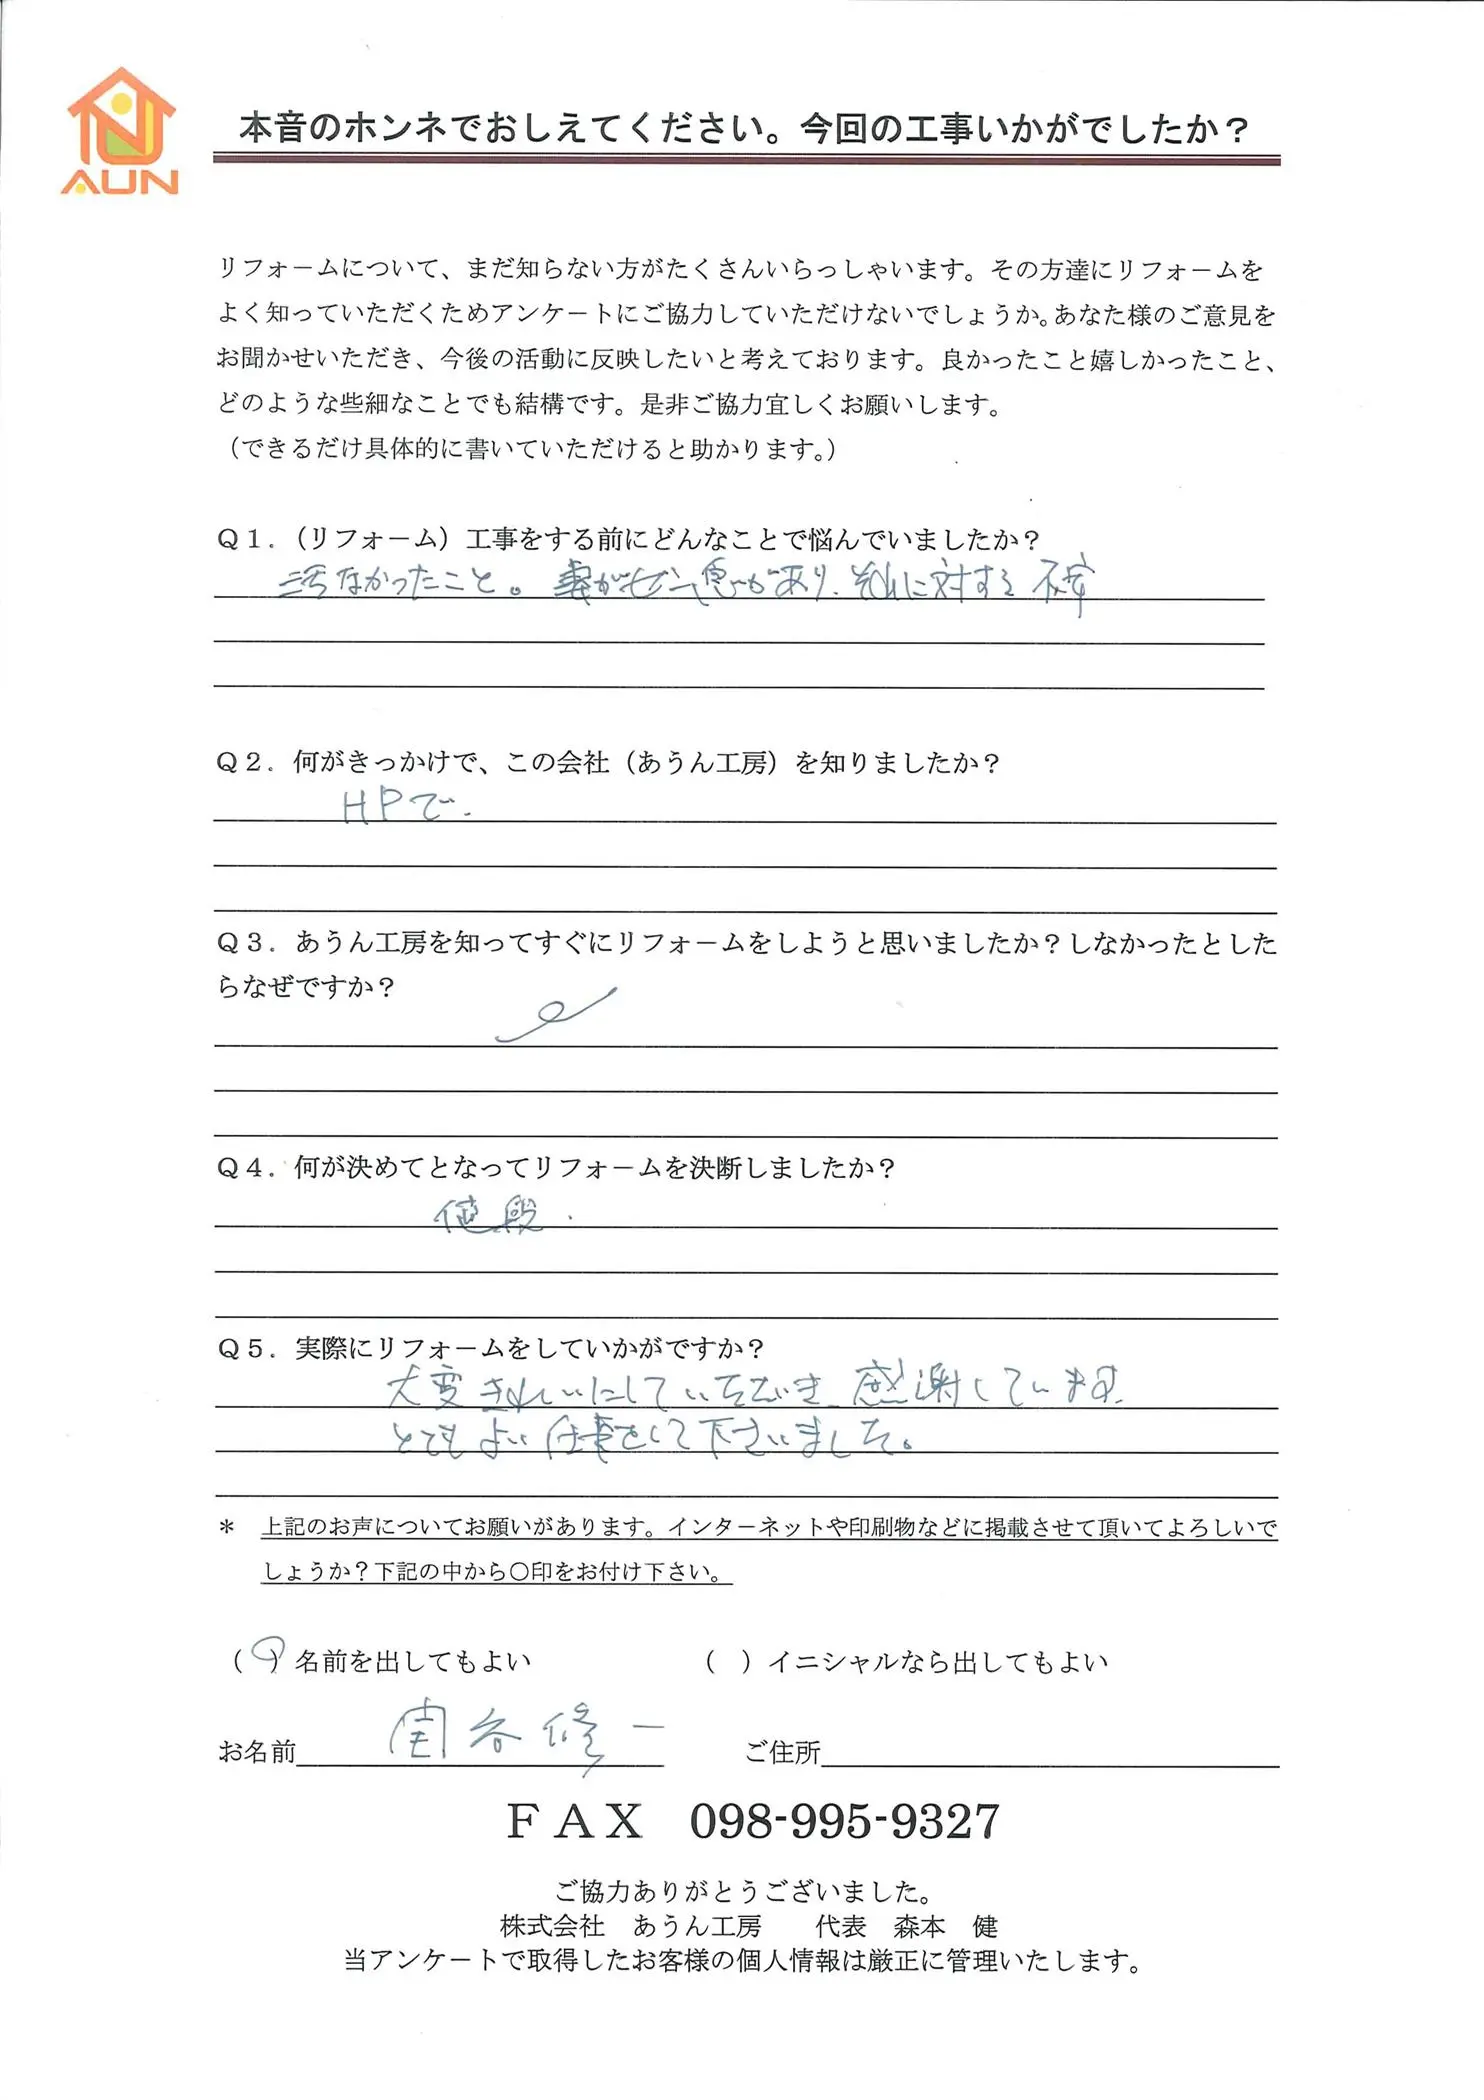 AUN
本音のホンネでおしえてください。今回の工事いかがでしたか？
リフォームについて、まだ知らない方がたくさんいらっしゃいます。その方達にリフォームを
よく知っていただくためアンケートにご協力していただけないでしょうか。あなた様のご意見を
お聞かせいただき、今後の活動に反映したいと考えております。良かったこと嬉しかったこと、
どのような些細なことでも結構です。是非ご協力宜しくお願いします。
（できるだけ具体的に書いていただけると助かります。）
Ｑ１．（リフォーム）工事をする前にどんなことで悩んでいましたか？
なかったこと。妻がぜん息があり、それに対する不安
Ｑ２．何がきっかけで、この会社（あうん工房）を知りましたか？
HPで.
Ｑ３．あうん工房を知ってすぐにリフォームをしようと思いましたか？しなかったとした
らなぜですか？
Ｑ４．何が決めてとなってリフォームを決断しましたか？
値段.
Ｑ５．実際にリフォームをしていかがですか？
大変きれいにしていただき、感謝しています。
とてもよい仕事をして下さいました。
＊ 上記のお声についてお願いがあります。インターネットや印刷物などに掲載させて頂いてよろしいで
しょうか？下記の中から〇印をお付け下さい。
（〇）名前を出してもよい （ ）イニシャルなら出してもよい
お名前 谷 修一 ご住所
ＦＡＸ 098-995-9327
ご協力ありがとうございました。
株式会社 あうん工房 代表 森本 健
当アンケートで取得したお客様の個人情報は厳正に管理いたします。